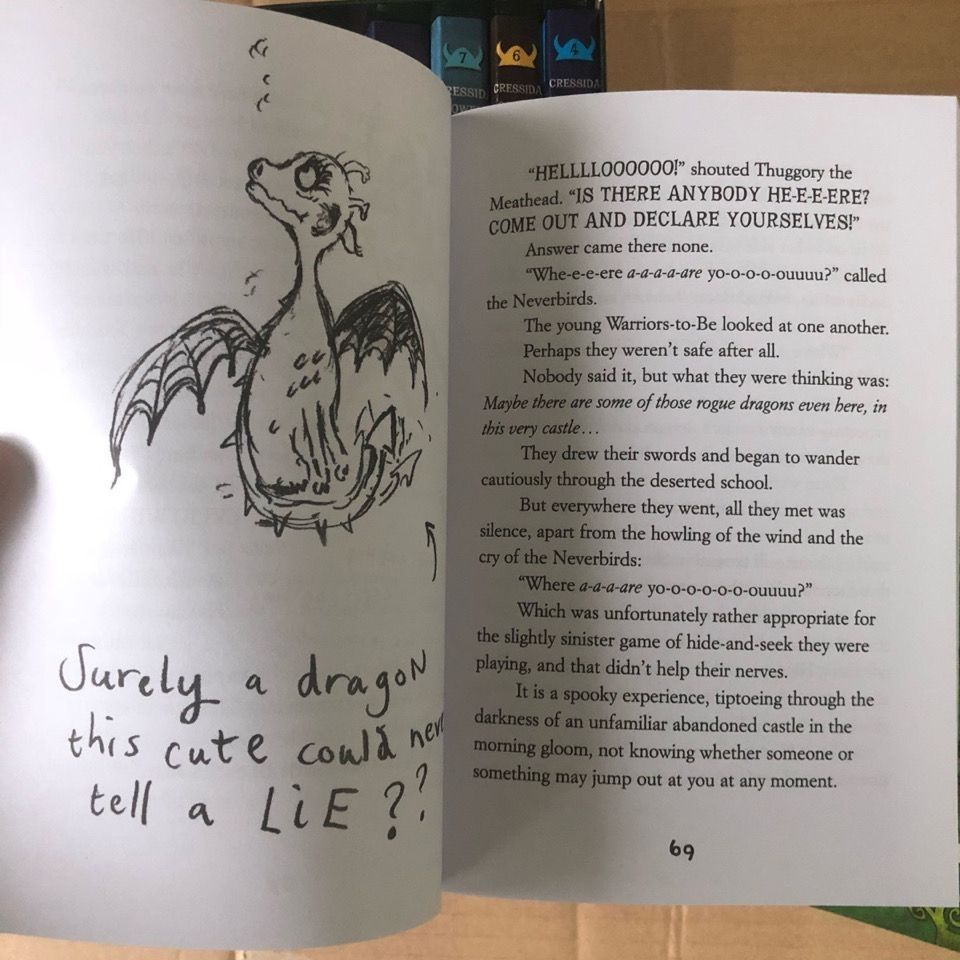 7
6
4
CRESSIDA
CRESSIDA
Surely a dragon
this cute could
tell a LiE ??
“HELLLLOOOOOO!” shouted Thuggory the
Meathead. “IS THERE ANYBODY HE-E-E-ERE?
COME OUT AND DECLARE YOURSELVES!”
Answer came there none.
“Whe-e-e-ere a-a-a-a-are yo-o-o-o-ouuuu?” called
the Neverbirds.
The young Warriors-to-Be looked at one another.
Perhaps they weren’t safe after all.
Nobody said it, but what they were thinking was:
Maybe there are some of those rogue dragons even here, in
this very castle…
They drew their swords and began to wander
cautiously through the deserted school.
But everywhere they went, all they met was
silence, apart from the howling of the wind and the
cry of the Neverbirds:
“Where a-a-a-are yo-o-o-o-o-ouuuu?”
Which was unfortunately rather appropriate for
the slightly sinister game of hide-and-seek they were
playing, and that didn’t help their nerves.
It is a spooky experience, tiptoeing through the
darkness of an unfamiliar abandoned castle in the
morning gloom, not knowing whether someone or
something may jump out at you at any moment.
69